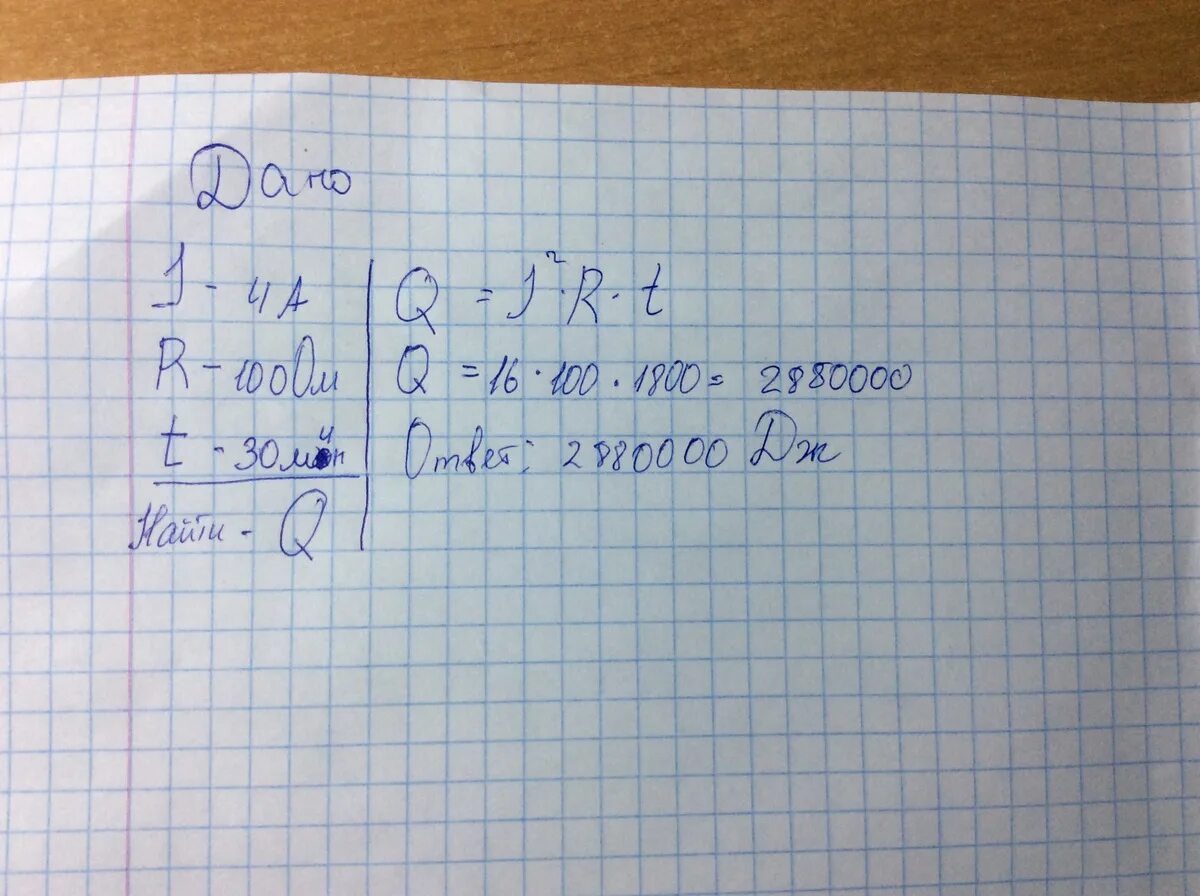 Дано
I - 4А
R - 100Ом
t - 30мин
Найти - Q
Q = I²·R·t
Q = 16·100·1800= 2880000
Ответ: 2880000 Дж